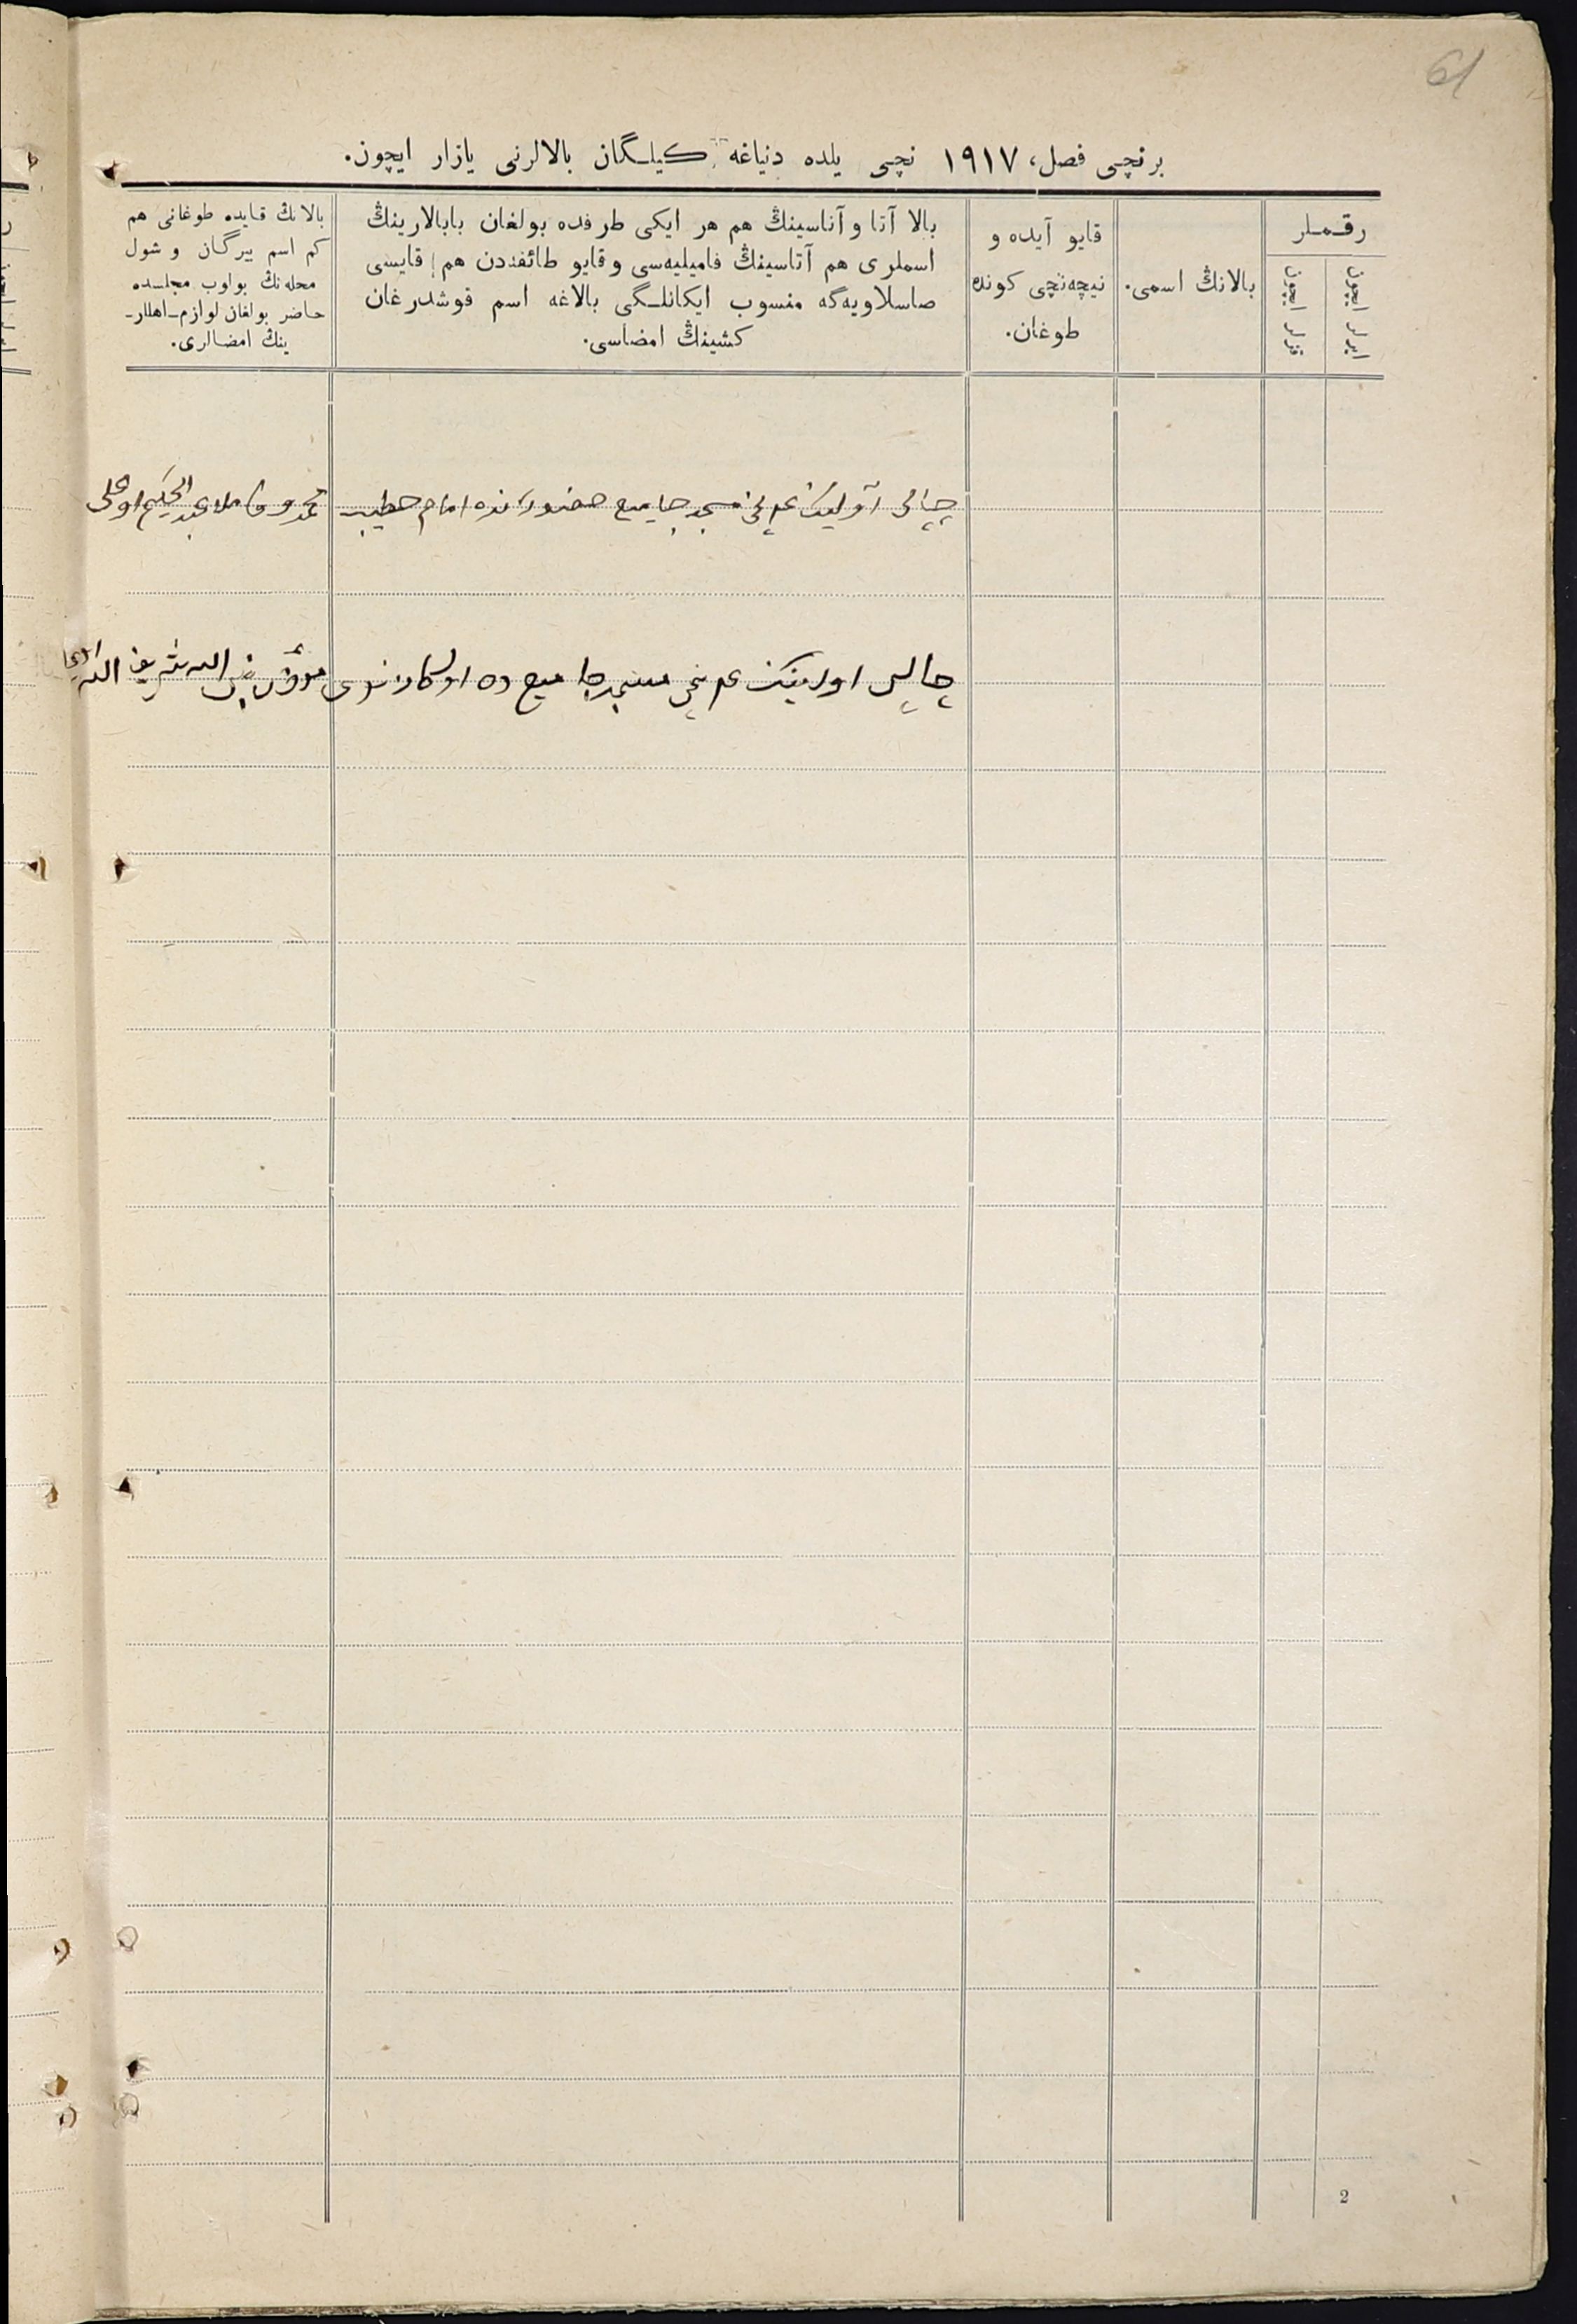 61
برنچی فصل، ۱۹۱۷ نچی یلده دنیاغه کیلگان بالالرنی یازار ایچون.
رقملر
ایرلر ایچون
قزلر ایچون
بالانڭ اسمی.
قایو آیده و
نیچه‌نچی کونده
طوغان.
بالا آتا و آناسینڭ هم هر ایکی طرفده بولغان بابالارینڭ
اسملری هم آتاسینڭ فامیلیه‌سی و قایو طائفه‌دن هم قایسی
صاسلاویه‌گه منسوب ایکانلگی بالاغه اسم قوشدرغان
کشینڭ امضاسی.
بالانڭ قایده طوغانی هم
کم اسم بیرگان و شول
محله‌نڭ بولوب مجلسده
حاضر بولغان لوازم-اهللار-
ینڭ امضالری.
چالپی آولینڭ نچی مسجد جامیع حضورنده امام خطیب محمدوفا ملا عبدالحکیم اوغلی
چالپی اولینڭ نچی مسجد جامیع ده مؤذن
2